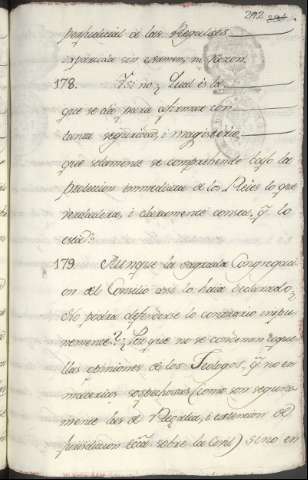 242
perjudicial de las Regulares
esparcida sin examen, ni razon.
178. Y si no, Qual es la
que se da, para afirmar con
tanta seguridad, i magisterio
que solamente se comprehende bajo la
proteccion immediata de los Reies lo que
verdadera, i claramente consta, q.e lo
está?
179. Aunque la sagrada Congregaci-
on del Concilio assi lo haia declarado,
No podra defenderse lo contrario impu-
nemente? Los que no se conforman aque-
llas opiniones de los Teologos, q.e no en
materias sospechosas (como son segura-
mente las de Regalia, i extension de
jurisdiccion ecca. sobre la Civil) sino en